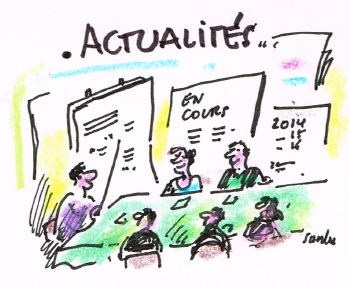 . ACTUALITÉS..
EN
COURS
2014
15
16